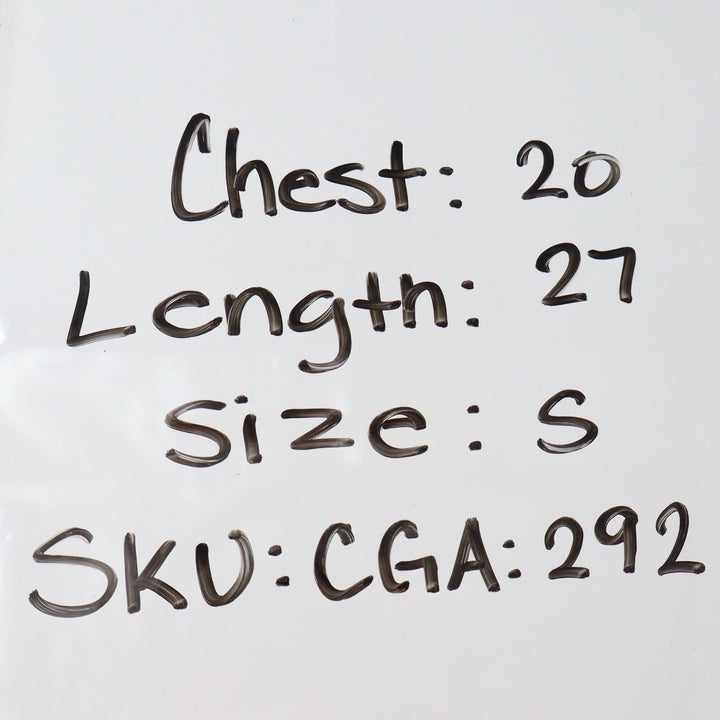 Chest: 20
Length: 27
Size: S
SKU:CGA:292